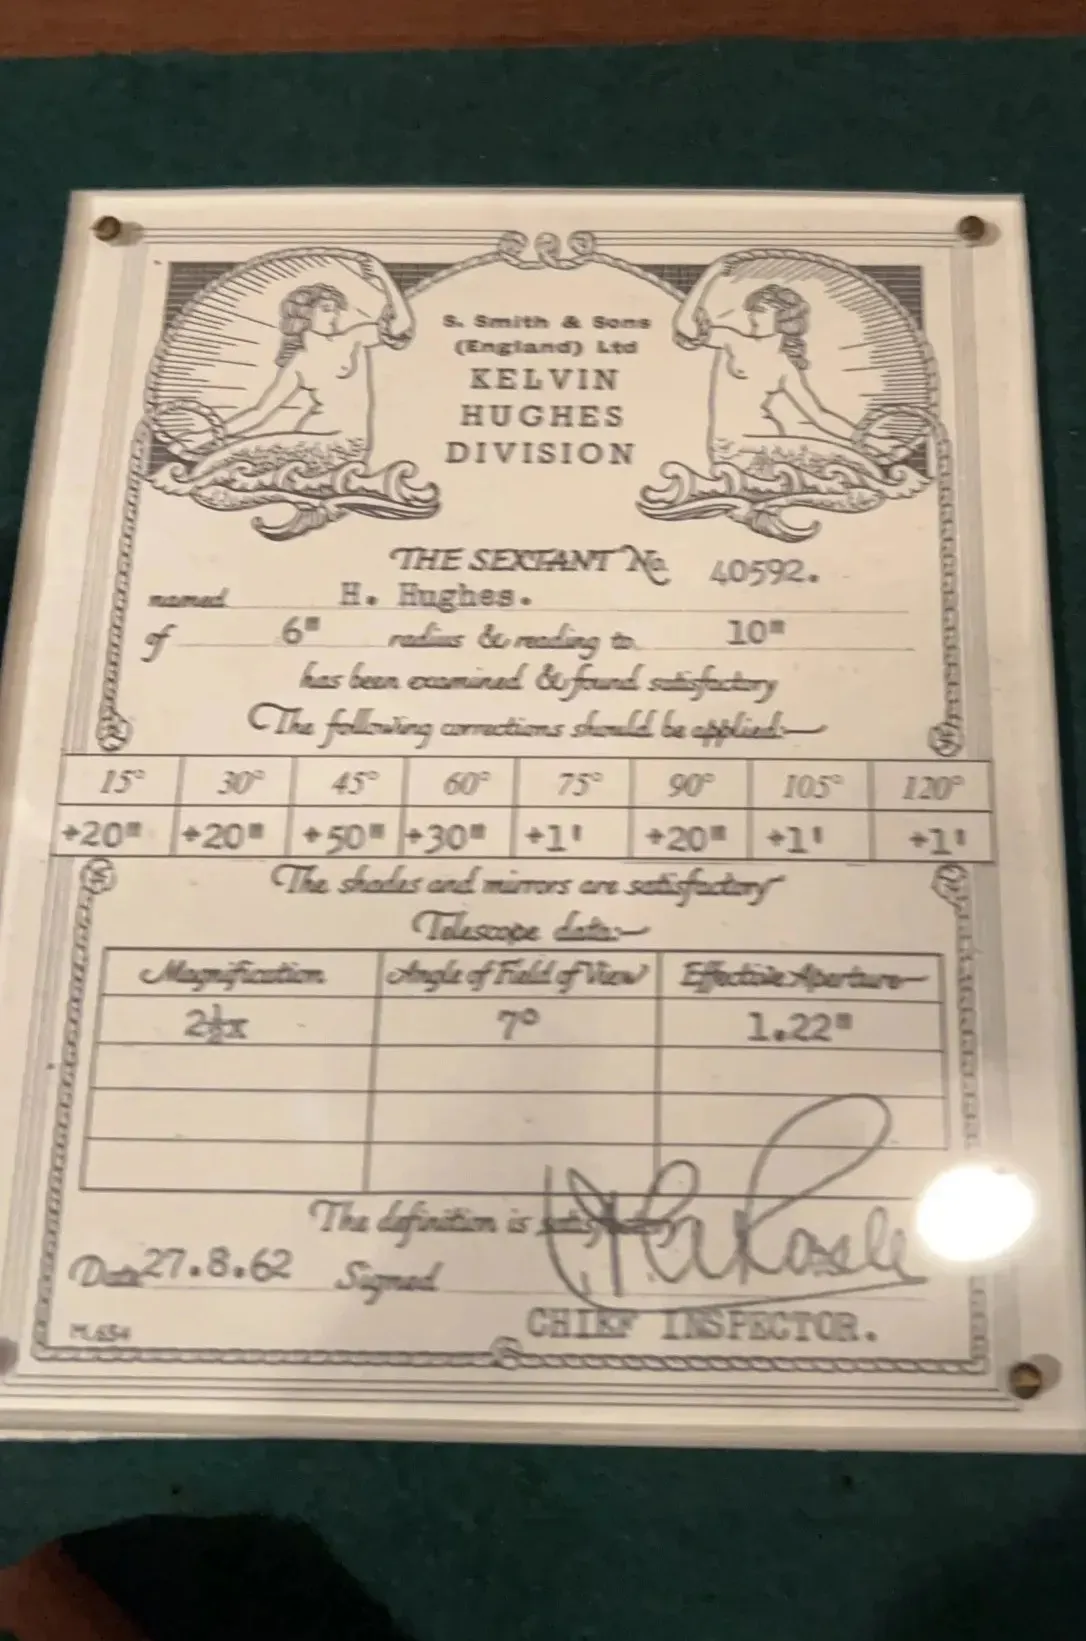 S. Smith & Sons
(England) Ltd
KELVIN
HUGHES
DIVISION
THE SEXTANT No. 40592.
named H. Hughes.
of 6" radius & reading to 10"
has been examined & found satisfactory
The following corrections should be applied:—
15° 30° 45° 60° 75° 90° 105° 120°
+20" +20" +50" +30" +1' +20" +1' +1'
The shades and mirrors are satisfactory
Telescope data:—
Magnification Angle of Field of View Effective Aperture
2½x 7° 1.22"
The definition is satisfactory
Date 27.8.62 Signed
CHIEF INSPECTOR.
M.654